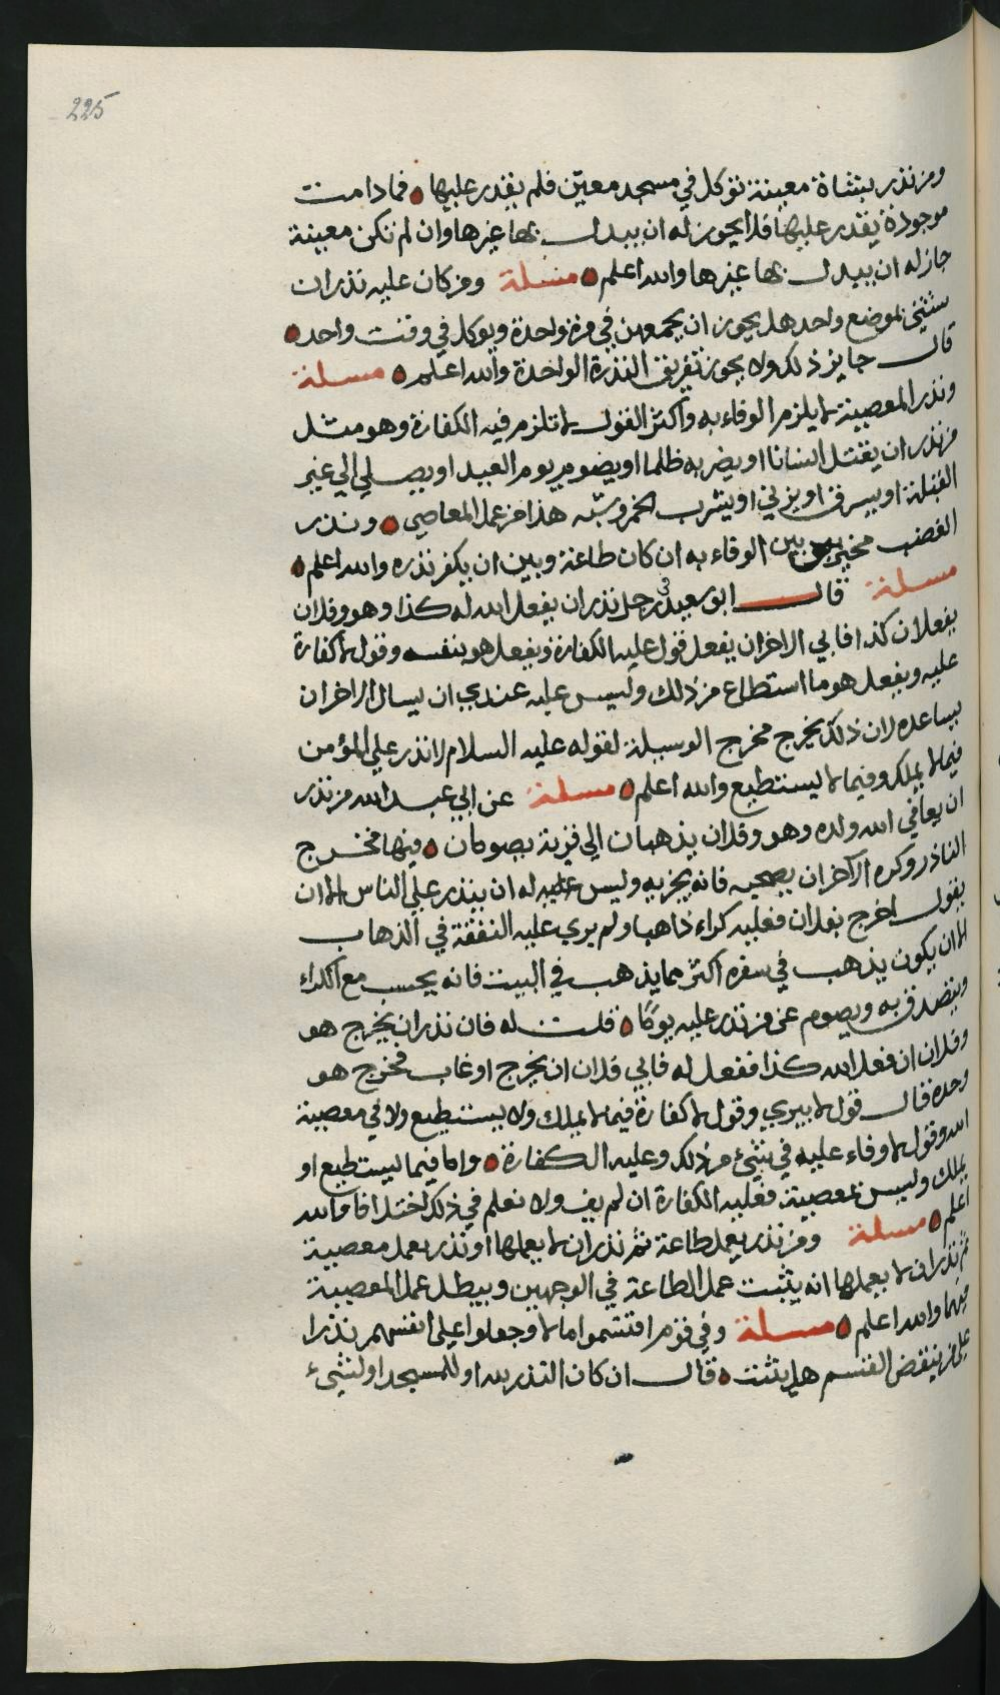 225
ومن نذر بشاة معينة توكل في مسجد معين فلم يقدر عليها فما دامت
موجودة يقدر عليها فلا يجوز له ان يبدل بها غيرها وان لم تكن معينة
جاز له ان يبدل بها غيرها والله اعلم مسلة ومن كان عليه نذران
شتى لموضع واحد هل يجوز ان يجمعهن في مرة واحدة ويوكل في وقت واحد
قال جايز ذلك ولا يجوز تفريق النذرة الواحدة والله اعلم مسلة
ونذر المعصية لا يلزم الوفاء به واكثر القول لا تلزم فيه الكفارة وهو مثل
من نذر ان يقتل انسانا او يضربه ظلما او يصوم يوم العيد او يصلي الي غير
القبلة او يسرق او يزني او يشرب الخمر وشبه هذا من عمل المعاصي ونذر
الغضب مخير بين الوفاء به ان كان طاعة وبين ان يكفر نذره والله اعلم
مسلة قال ابو سعيد في رجل نذر ان يفعل الله له كذا وهو وفلان
يفعلان كذا فابي الاخر ان يفعل قول عليه الكفارة ويفعل هو بنفسه وقول لا كفارة
عليه ويفعل هو ما استطاع من ذلك وليس عليه عندي ان يسال الاخر ان
يساعده لان ذلك يخرج مخرج الوسيلة لقوله عليه السلام لا نذر علي المؤمن
فيما لا يملك وفيما لا يستطيع والله اعلم مسلة عن ابي عبد الله من نذر
ان يعافي الله ولده وهو وفلان يذهبان الي قرية يصومان فيها فخرج
الناذر وكره الاخر ان يصحبه فانه يجزيه وليس عليه له ان ينذر علي الناس الا ان
يقول اخرج بفلان فعليه كراء ذاهبا ولم يري عليه النفقة في الذهاب
الا ان يكون يذهب في سفره اكثر مما يذهب في البيت فانه يحسب مع الكراء
ويتصدق به ويصوم عن من نذر عليه يوما قلت له فان نذر ان يخرج هو
وفلان ان فعل الله كذا ففعل له فابي فلان ان يخرج او غاب فخرج هو
وحده قال قول لا يبري وقول لا كفارة فيما لا يملك ولا يستطيع ولا في معصية
الله وقول لا وفاء عليه في شيء من ذلك وعليه الكفارة واما فيما يستطيع او
يملك وليس بمعصية فعليه الكفارة ان لم يف ولا نعلم في ذلك اختلافا والله
اعلم مسلة ومن نذر بعمل طاعة ثم نذر ان لا يعملها او نذر بعمل معصية
ثم نذر ان لا يعملها انه يثبت عمل الطاعة في الوجهين ويبطل عمل المعصية
فيهما والله اعلم مسلة وفي قوم اقتسموا مالا وجعلوا علي انفسهم نذرا
علي من ينقض القسم هل يثبت قال ان كان النذر لله او للمسجد او لشيء